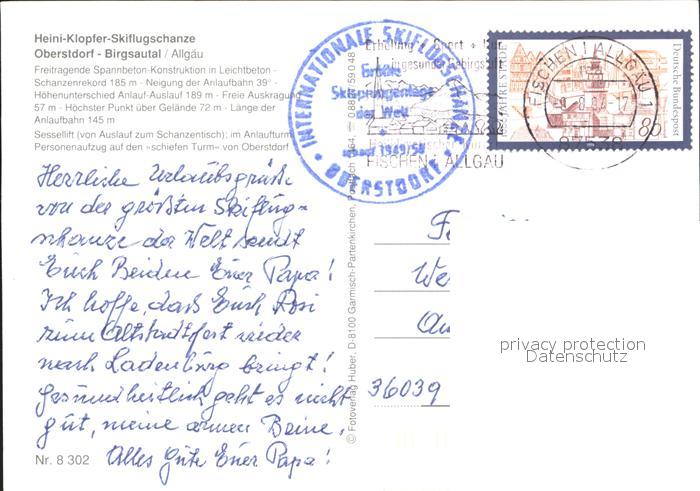 Heini-Klopfer-Skiflugschanze
Oberstdorf - Birgsautal / Allgäu
Freitragende Spannbeton-Konstruktion in Leichtbeton -
Schanzenrekord 185 m - Neigung der Anlaufbahn 39° -
Höhenunterschied Anlauf-Auslauf 189 m - Freie Auskragung
57 m - Höchster Punkt über Gelände 72 m - Länge der
Anlaufbahn 145 m
Sessellift (von Auslauf zum Schanzentisch); im Anlaufturm
Personenaufzug auf den »schiefen Turm« von Oberstdorf
Herrliche Urlaubsgrüße
von der größten Skiflug-
schanze der Welt sendt
Euch Beiden Euer Papa!
Ich hoffe, daß Euch Rosi
zum Altstadtfest wieder
nach Ladenburg bringt!
Gesundheitlich geht es nicht
gut, meine armen Beine.
Alles Gute Euer Papa!
Nr. 8 302
© Fotoverlag Huber, D-8100 Garmisch-Partenkirchen
INTERNATIONALE SKIFLUGSCHANZE
Skisprunganlage
der Welt
erbaut 1949/50
OBERSTDORF
Erholung Sport
FISCHEN ALLGÄU
FISCHEN I ALLGÄU 1
Deutsche Bundespost
80
We
36039
privacy protection
Datenschutz